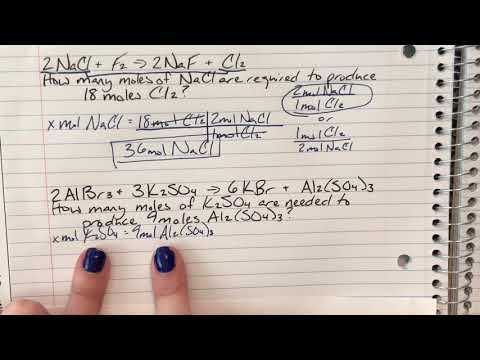 2NaCl + F₂ → 2NaF + Cl₂
How many moles of NaCl are required to produce
18 moles Cl₂?
2mol NaCl
1mol Cl₂
or
1mol Cl₂
2mol NaCl
x mol NaCl = 18mol Cl₂ 2mol NaCl
1mol Cl₂
36mol NaCl
2AlBr₃ + 3K₂SO₄ → 6KBr + Al₂(SO₄)₃
How many moles of K₂SO₄ are needed to
produce 9moles Al₂(SO₄)₃?
x mol K₂SO₄ = 9mol Al₂(SO₄)₃